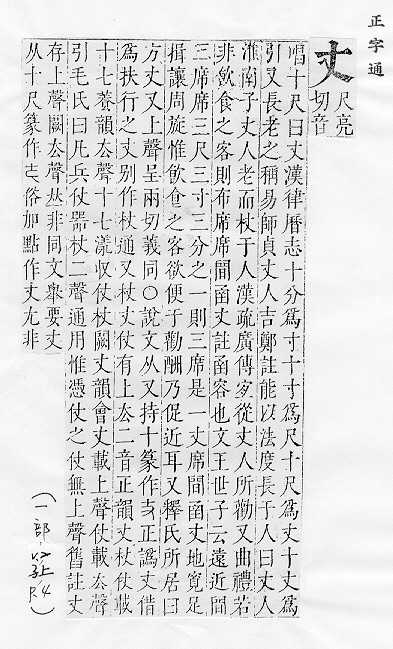 正字通
丈
尺亮
切音
唱十尺曰丈漢律曆志十分爲寸十寸爲尺十尺爲丈十丈爲
引又長老之稱易師貞丈人吉鄭註能以法度長于人曰丈人
淮南子丈人老而杖于人漢疏廣傳宐從丈人所勸又曲禮若
非飲食之客則布席席間函丈註函容也文王世子云遠近間
三席席三尺三寸三分之一則三席是一丈席間函丈地寬足
揖讓周旋惟飲食之客欲便于勸酬乃促近耳又釋氏所居曰
方丈又上聲呈兩切義同○說文从又持十篆作正譌丈借
爲扶行之丈別作杖通又杖丈仗有上厺二音正韻丈杖仗載
十七養韻厺聲十七漾収仗杖闕丈韻會丈載上聲仗載厺聲
引毛氏曰凡兵仗器杖二聲通用惟憑仗之仗無上聲舊註丈
存上聲闕厺聲𠀤非同文舉要丈
从十尺篆作俗加點作尢非
(一部. P.4)